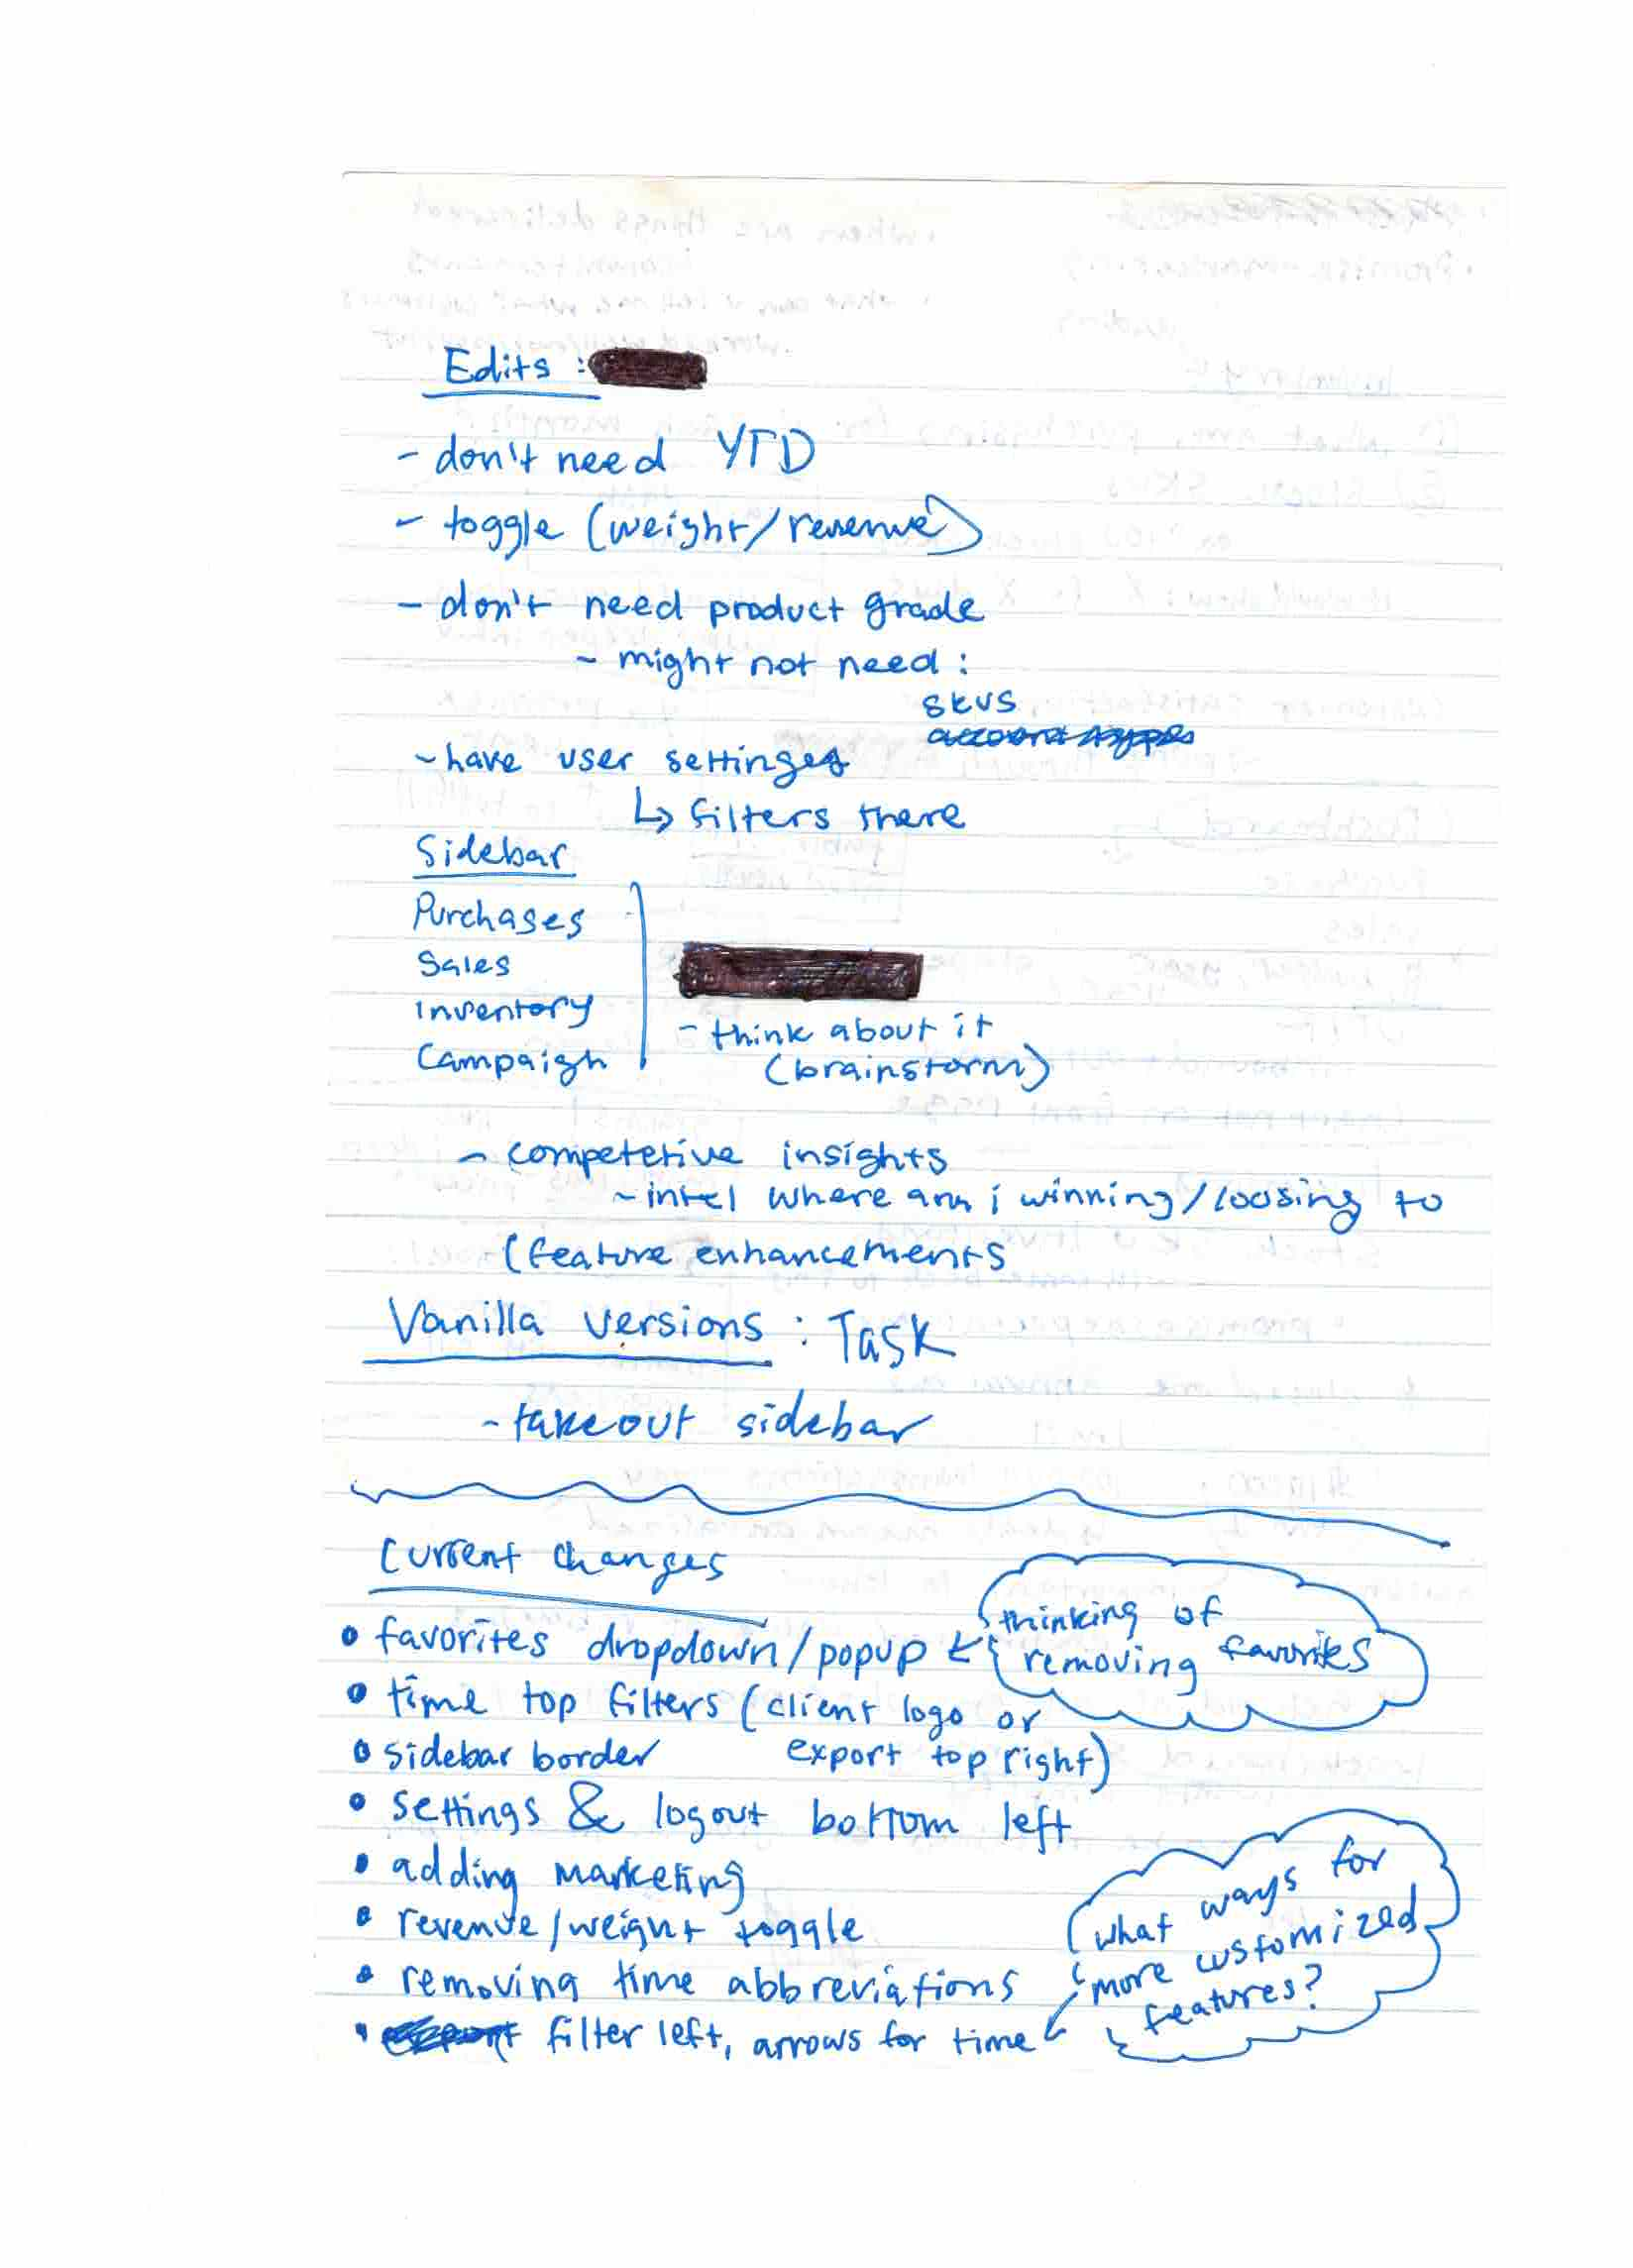 Edits :
- don't need YTD
- toggle (weight/revenue)
- don't need product grade
- might not need :
SKUS
- have user settings
↳ filters there
Sidebar
Purchases
Sales
Inventory
Campaign
- think about it
(brainstorm)
- competetive insights
- intel where am i winning/loosing to
(feature enhancements
Vanilla versions : Task
- takeout sidebar
Current changes
• favorites dropdown/popup ←
thinking of
removing favorites
• time top filters (client logo or
export top right)
• sidebar border
• settings & logout bottom left
• adding marketing
• revenue/weight toggle
• removing time abbreviations
• filter left, arrows for time
what ways for
more customized
features?